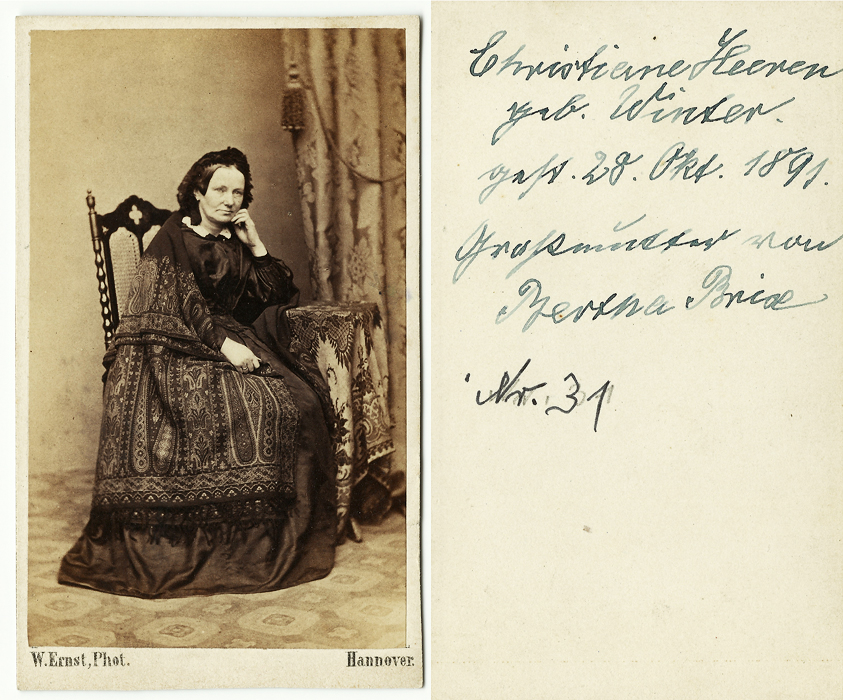 W. Ernst, Phot. Hannover.
Christine Heeren
geb. Winter.
gest. 28. Okt. 1891.
Großmutter von
Bertha Brix
Nr. 31